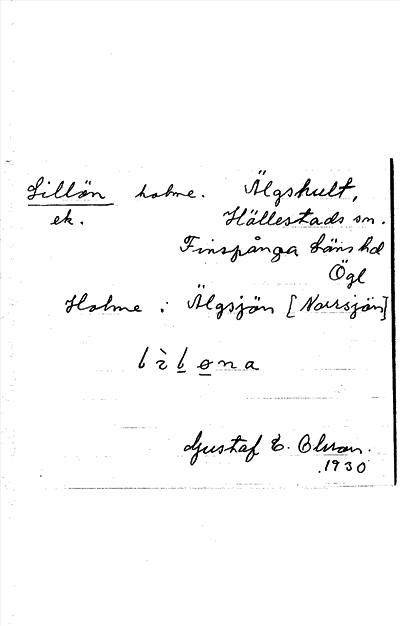 Lillön holme. Älgshult,
ek. Hällestads sn.
Finspånga läns hd
Ögl
Holme i Älgsjön [Norrsjön]
Gustaf E. Olson.
1930